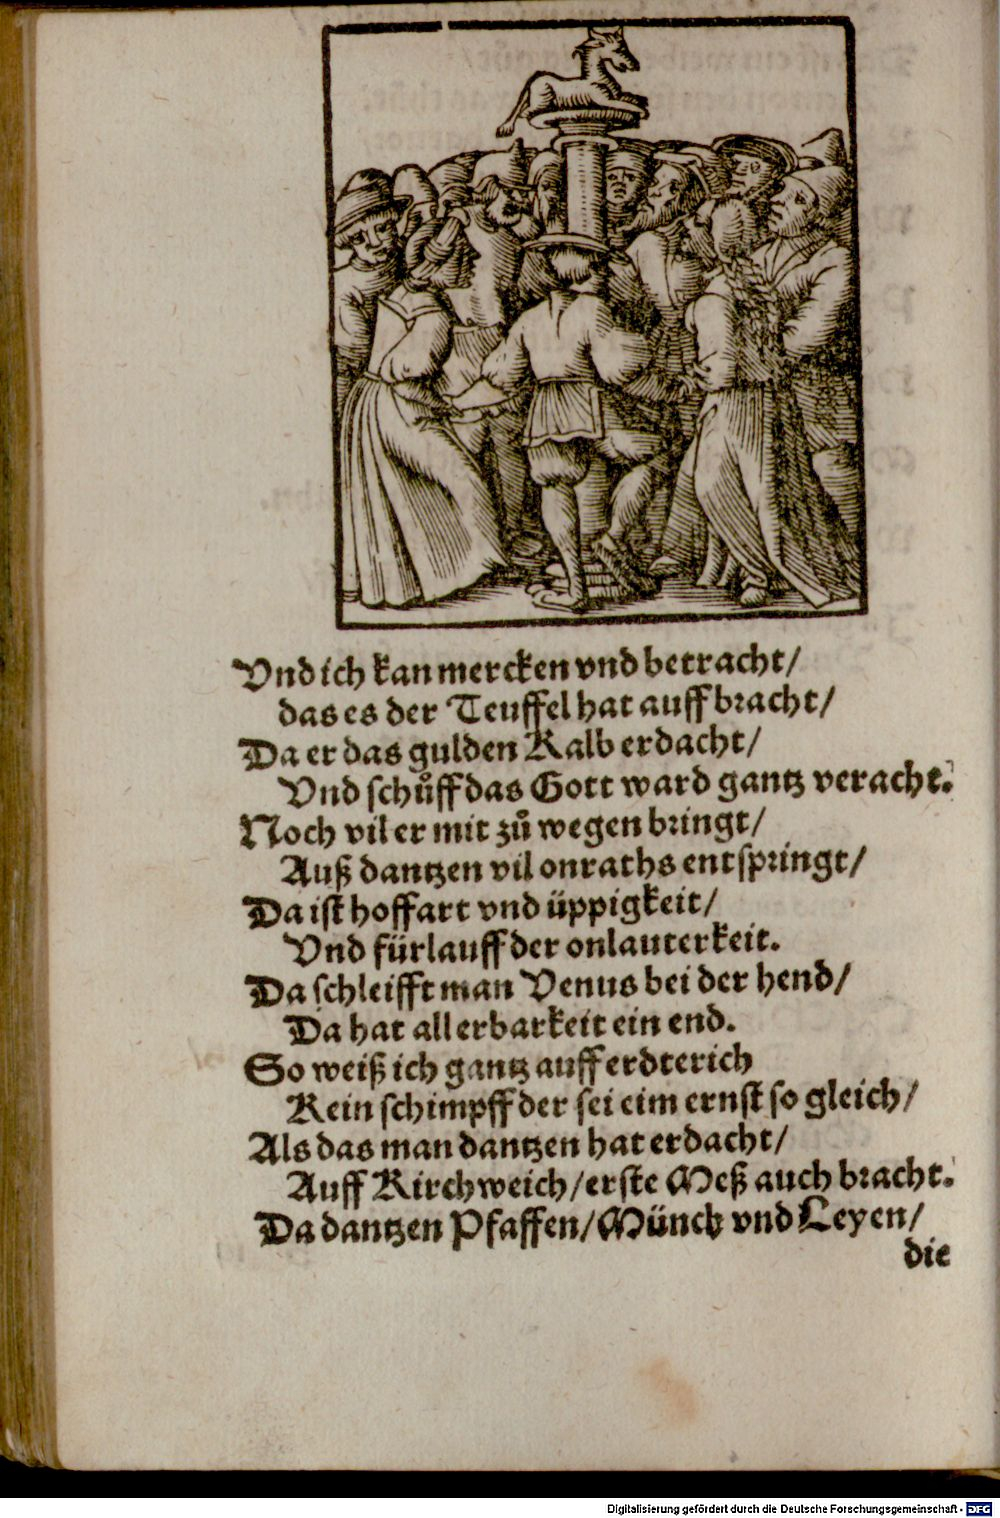 Vnd ich kan mercken vnd betracht/
das es der Teuffel hat auff bracht/
Da er das gulden Kalb erdacht/
Vnd schůff das Gott ward gantz veracht.
Noch vil er mit zů wegen bringt/
Auß dantzen vil onraths entspringt/
Da ist hoffart vnd üppigkeit/
Vnd fürlauff der onlauterkeit.
Da schleifft man Venus bei der hend/
Da hat all erbarkeit ein end.
So weiß ich gantz auff erdterich
Kein schimpff der sei eim ernst so gleich/
Als das man dantzen hat erdacht/
Auff Kirchweich/erste Meß auch bracht.
Da dantzen Pfaffen/Münch vnd Leyen/
die
Digitalisierung gefördert durch die Deutsche Forschungsgemeinschaft - DFG